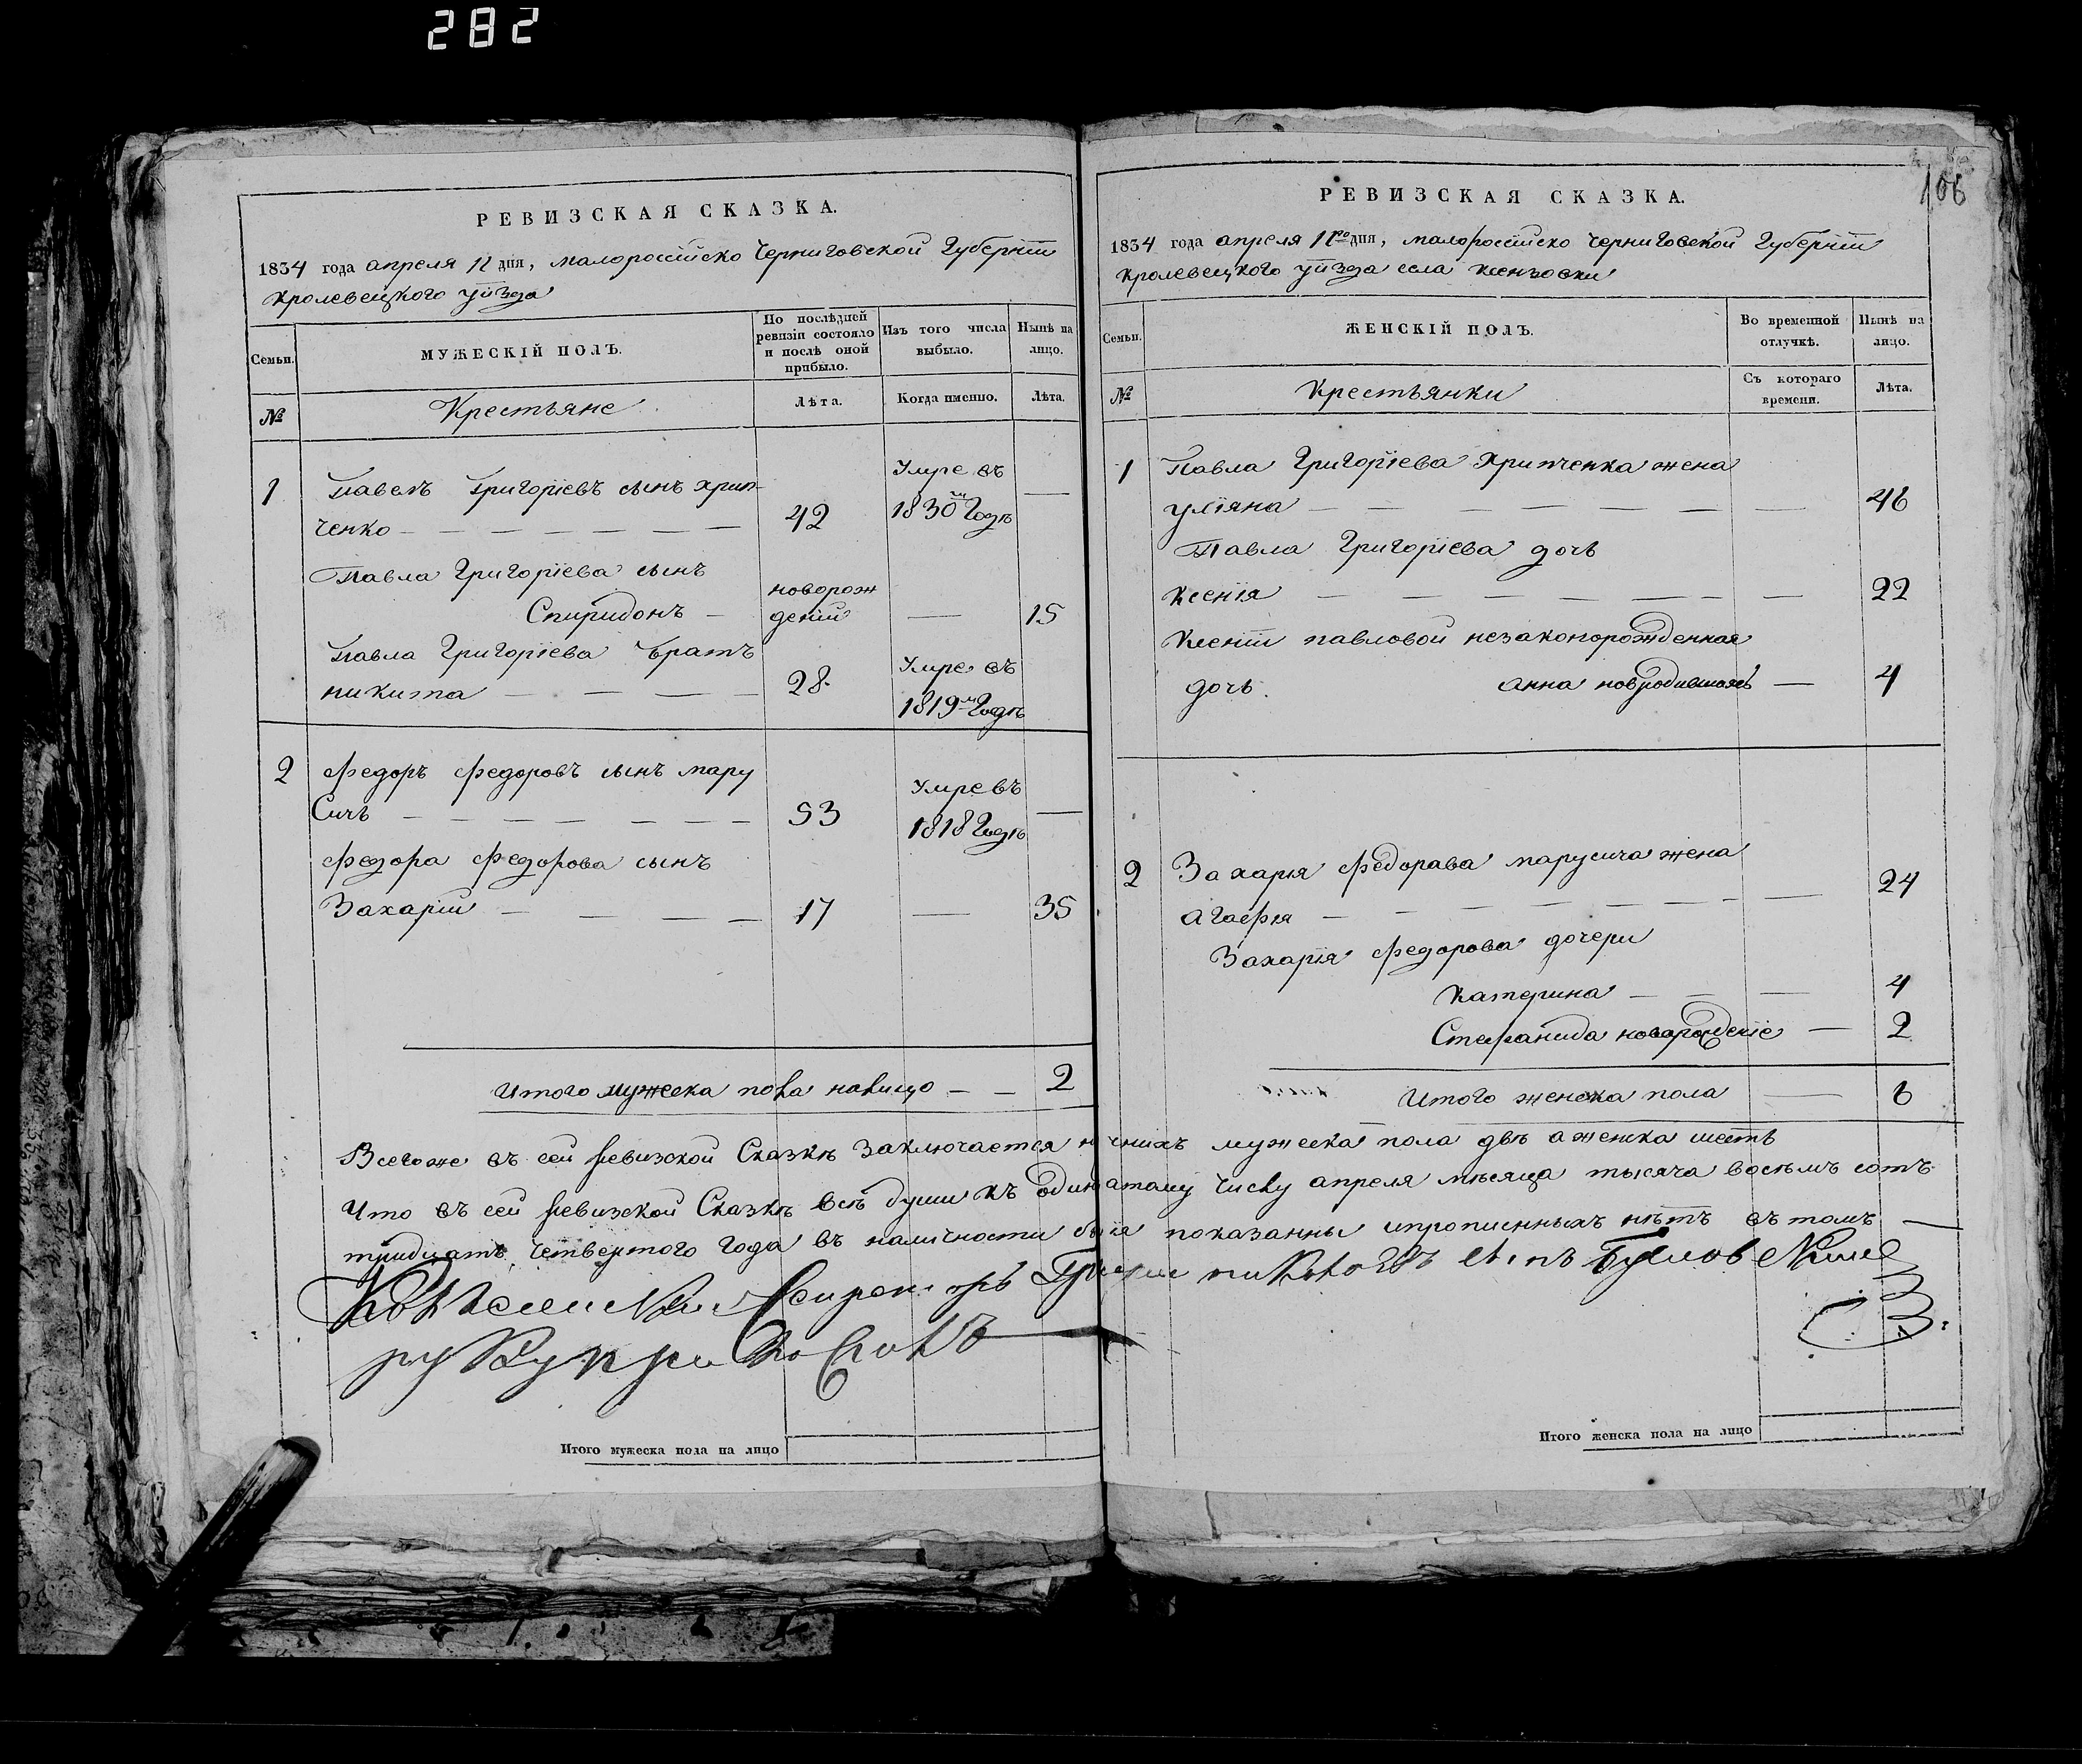 282
РЕВИЗСКАЯ СКАЗКА.
1834 года апреля 11 дня, малороссійско Черниговской Губерніи
Кролевецкого уѣзда
Семьи.
МУЖЕСКІЙ ПОЛЪ.
По послѣдней ревизіи состояло и послѣ оной прибыло.
Изъ того числа выбыло.
Нынѣ на лицо.
№
Крестьяне
Лѣта.
Когда именно.
Лѣта.
1 Павелъ Григоріевъ сынъ Хрип-
ченко 42 Умре въ 1830м Годѣ
Павла Григоріева сынъ
Спиридонъ новорож деній 15
Павла Григоріева братъ
никита 28 Умре въ 1819м Годѣ
2 Федоръ Федоровъ сынъ мару
Сичъ 53 Умре въ 1818 Годѣ
Федора Федорова сынъ
Захарій 17 35
Итого мужеска пола налицо 2
Итого мужеска пола на лицо
106
РЕВИЗСКАЯ СКАЗКА.
1834 года апреля 11го дня, малороссійско Черниговской Губерніи
Кролевецкого уѣзда села
Семьи.
ЖЕНСКІЙ ПОЛЪ.
Во временной отлучкѣ.
Нынѣ на лицо.
№
Крестьянки
Съ котораго времени.
Лѣта.
1 Павла Григоріева Хрипченка жена
уліяна 46
Павла Григоріева дочь
Ксенія 22
Ксеніи павловой незаконорожденная
дочь анна 4
2 Захарія Федорава марусича жена
Агафія 24
Захарія Федорова дочери
Катерина 4
Стефанида новорожденіе 2
Итого женска пола 6
Всегоже въ сей ревизской Сказкѣ Заключается мужеска пола двѣ а женска шесть
Что въ сей ревизской Сказкѣ всѣ души къ одинатому числу апреля мѣсяца тысяча восемъ сотъ
тридцать четвертого года въ наличности показанны ипрописнныхъ нѣтъ въ томъ
руку приложилъ
Итого женска пола на лицо